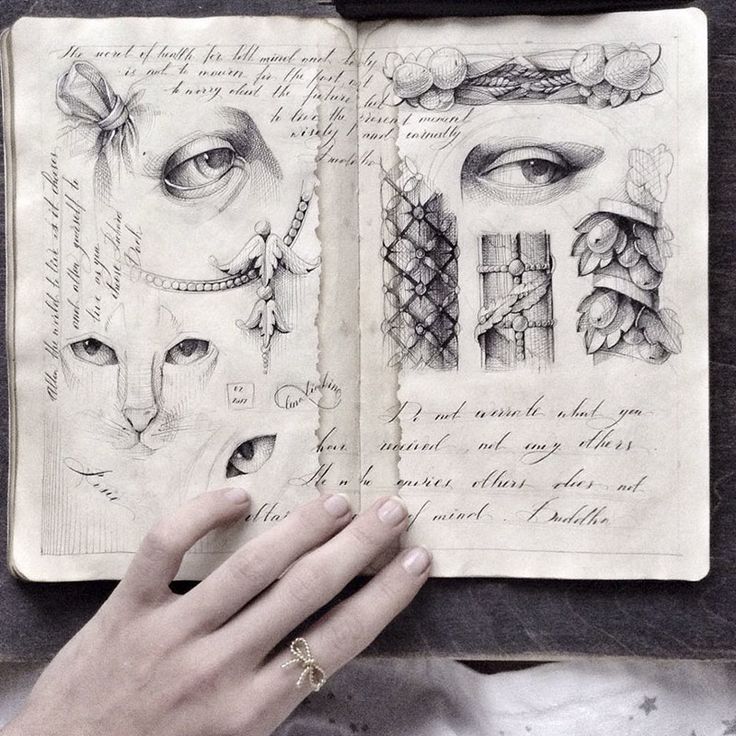 The secret of health for both mind and body
is not to mourn for the past, not
to worry about the future, but
to live the present moment
wisely and earnestly
Buddha
Allow the world to live as it chooses
and allow yourself to
live as you
choose
Richard
Bach
02
2017
Isis
Do not overrate what you
have received, not envy others.
He who envies others does not
obtain of mind. Buddha